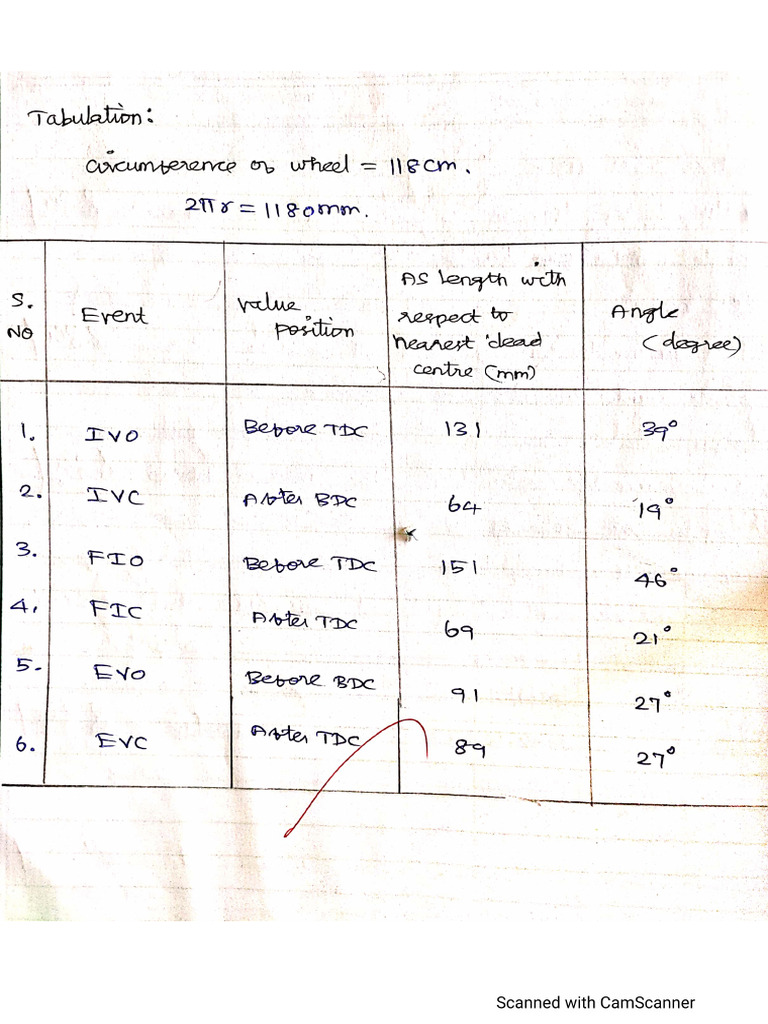 Tabulation:
Circumference of wheel = 118cm.
2πr = 1180mm.
S. No | Event | Value position | AS length with respect to nearest dead centre (mm) | Angle (degree)
1. | IVO | Before TDC | 131 | 39°
2. | IVC | After BDC | 64 | 19°
3. | FIO | Before TDC | 151 | 46°
4. | FIC | After TDC | 69 | 21°
5. | EVO | Before BDC | 91 | 27°
6. | EVC | After TDC | 89 | 27°
Scanned with CamScanner